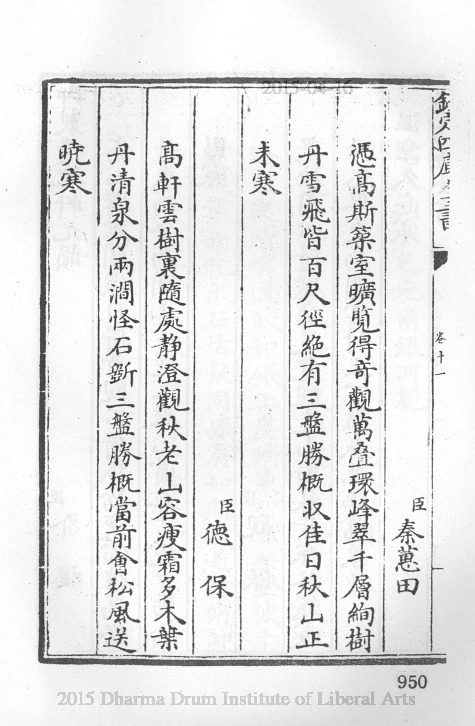 2015-04-16
欽定四庫全書
卷十一
臣秦蕙田
憑高斯築室曠覽得奇觀萬叠環峰翠千層絢樹
丹雪飛皆百尺徑絶有三盤勝概収佳日秋山正
未寒
臣德保
高軒雲樹裏隨處静澄觀秋老山容瘦霜多木葉
丹清泉分兩澗怪石斵三盤勝概當前會松風送
曉寒
950
2015 Dharma Drum Institute of Liberal Arts